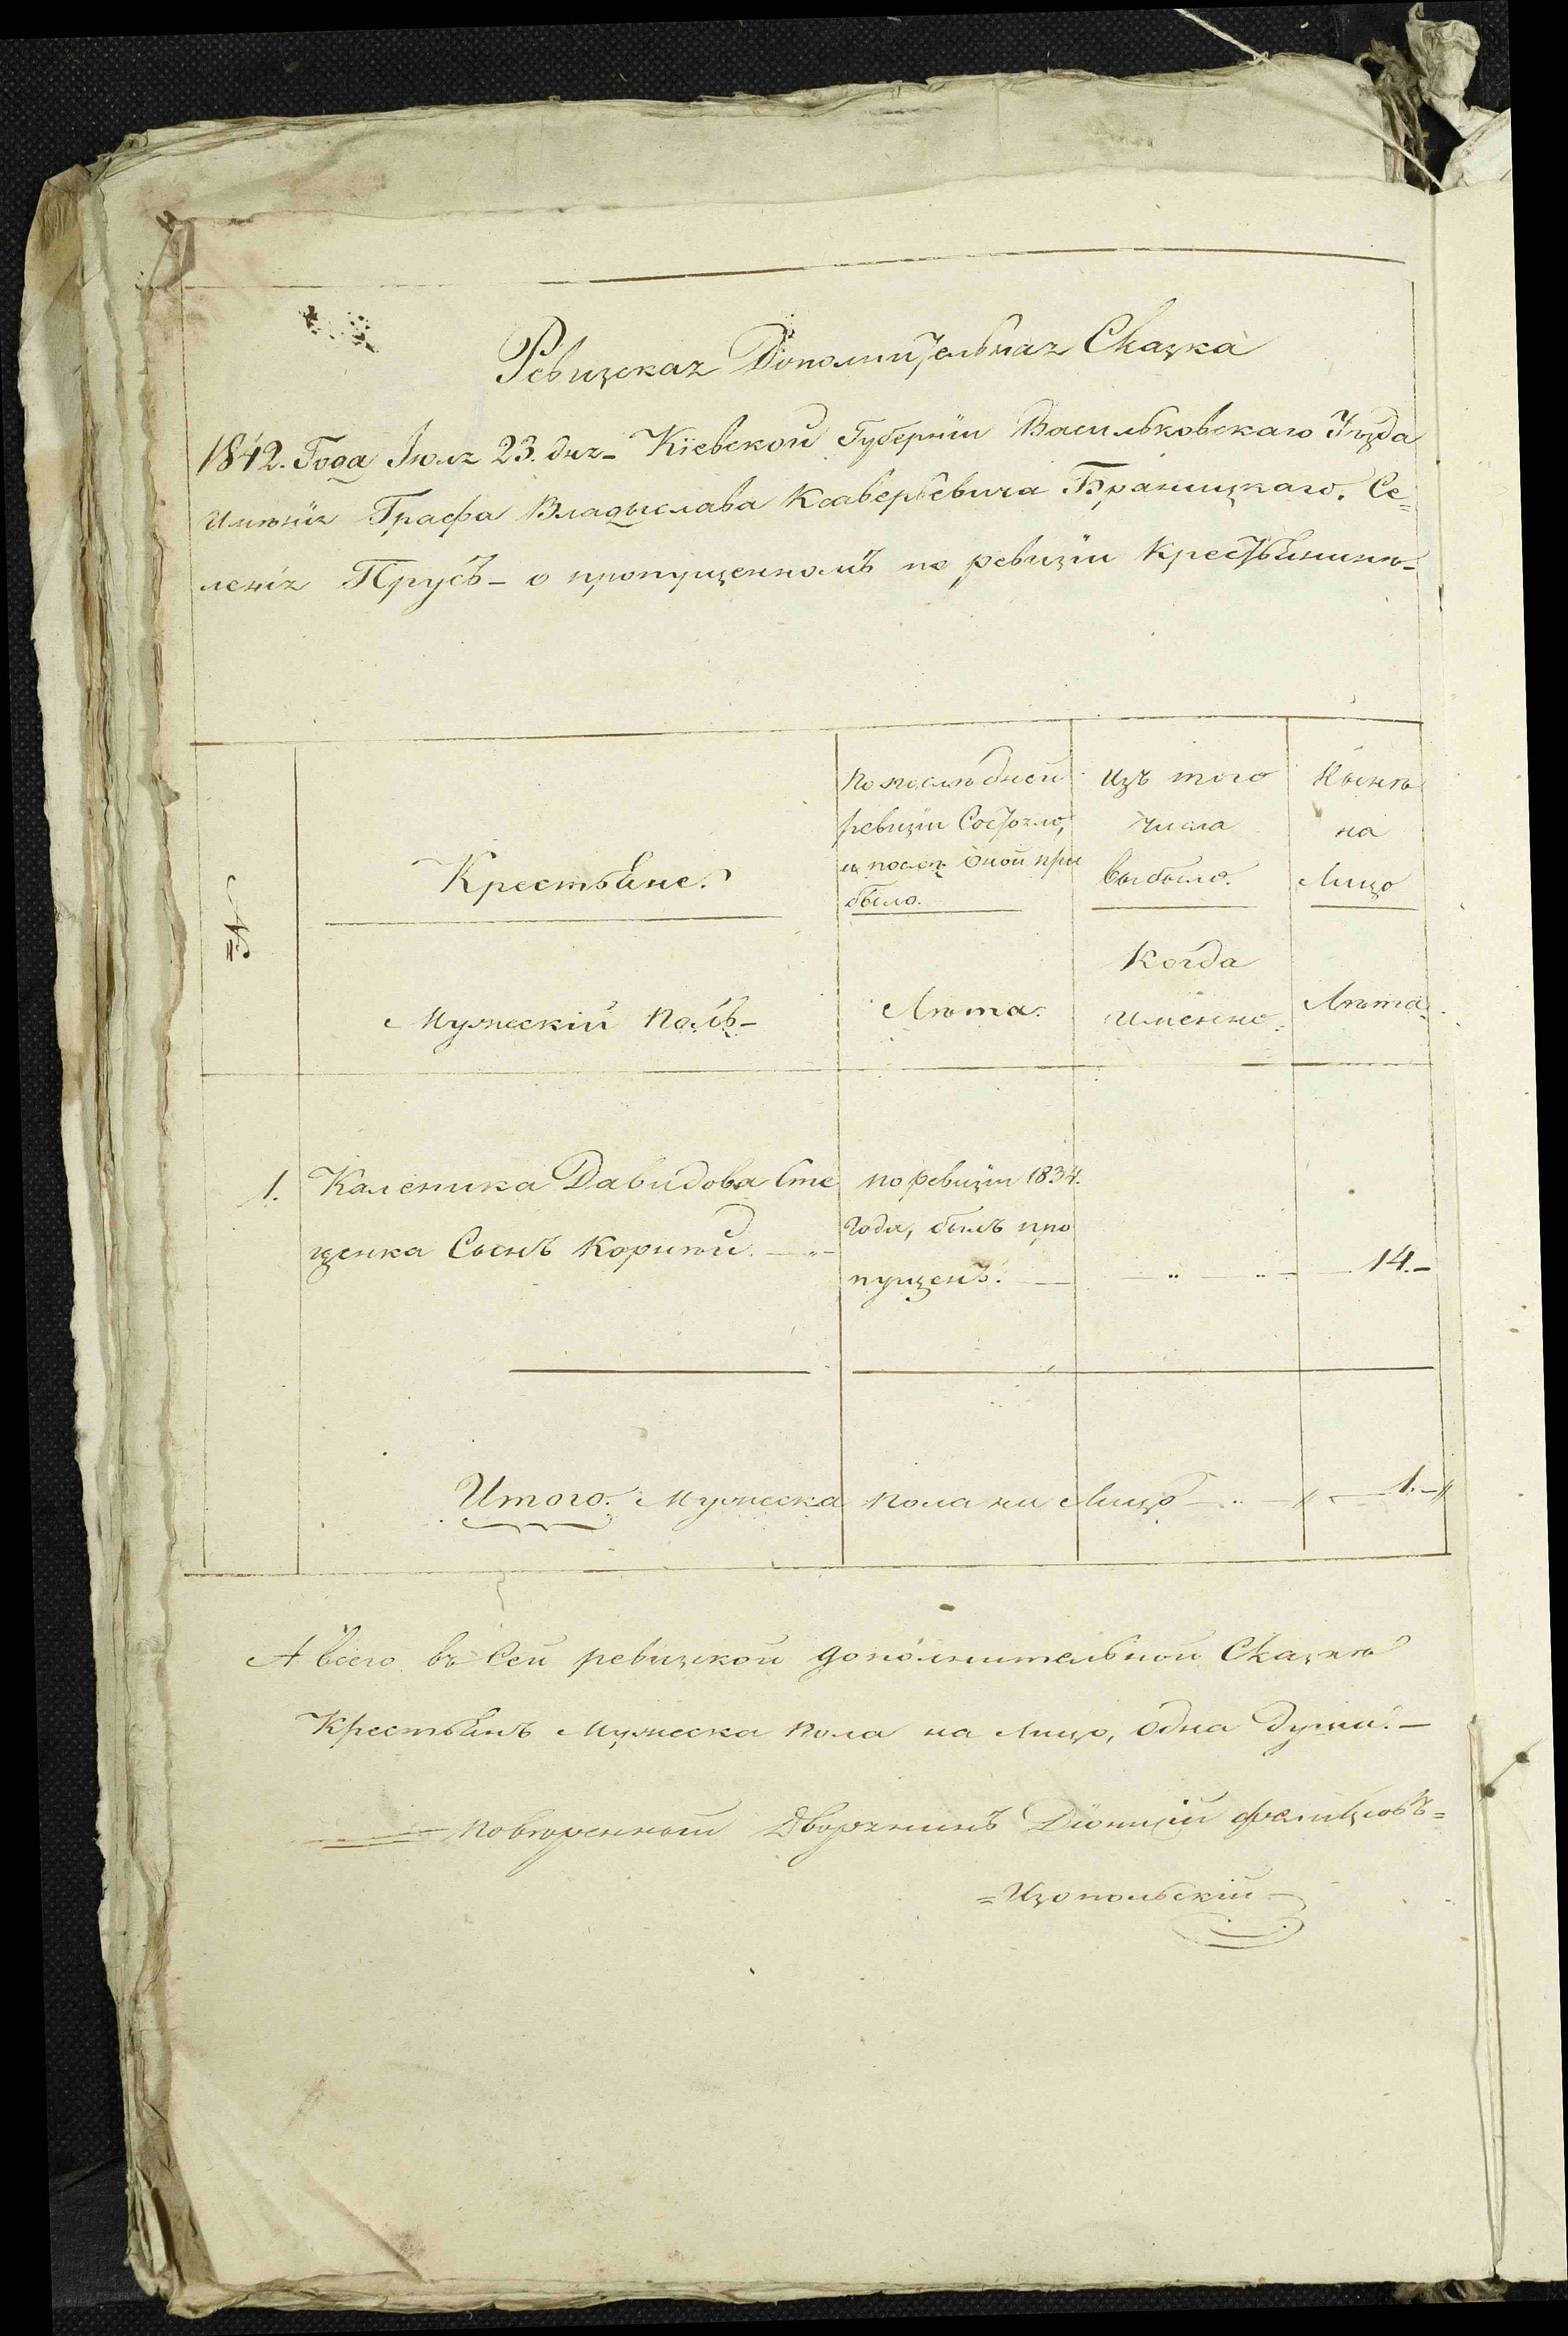 Ревизская Дополнительная Сказка
1842. Года Іюля 23. дня – Кіевской Губерніи Васильковскаго Уѣзда
Имѣнія Графа Владыслава Ксаверьевича Браницкаго. Се=
ленія Прусъ – о пропущенномъ по ревизіи Крестьянинѣ –
№
Крестьяне.
Мужескій Полъ –
По послѣдней
ревизіи Состояло,
и послѣ оной при
было.
Лѣта.
Изъ того
числа
выбыло.
Когда
Именно.
Нынѣ
на
Лицо
Лѣта.
1. Каленика Давидова Сте
щенка Сынъ Корнѣй. – „ –
по ревизіи 1834.
Года, былъ про
пущенъ. –
– „ – „ – 14. –
Итого. Мужеска пола на Лицо – „ – „ – 1. – „
А всего въ Сей ревизкой дополнительной Сказкѣ
Крестьянъ Мужеска пола на Лицо, одна душа. –
Повѣренный Дворянинъ Діонизій
= Изопольскій –